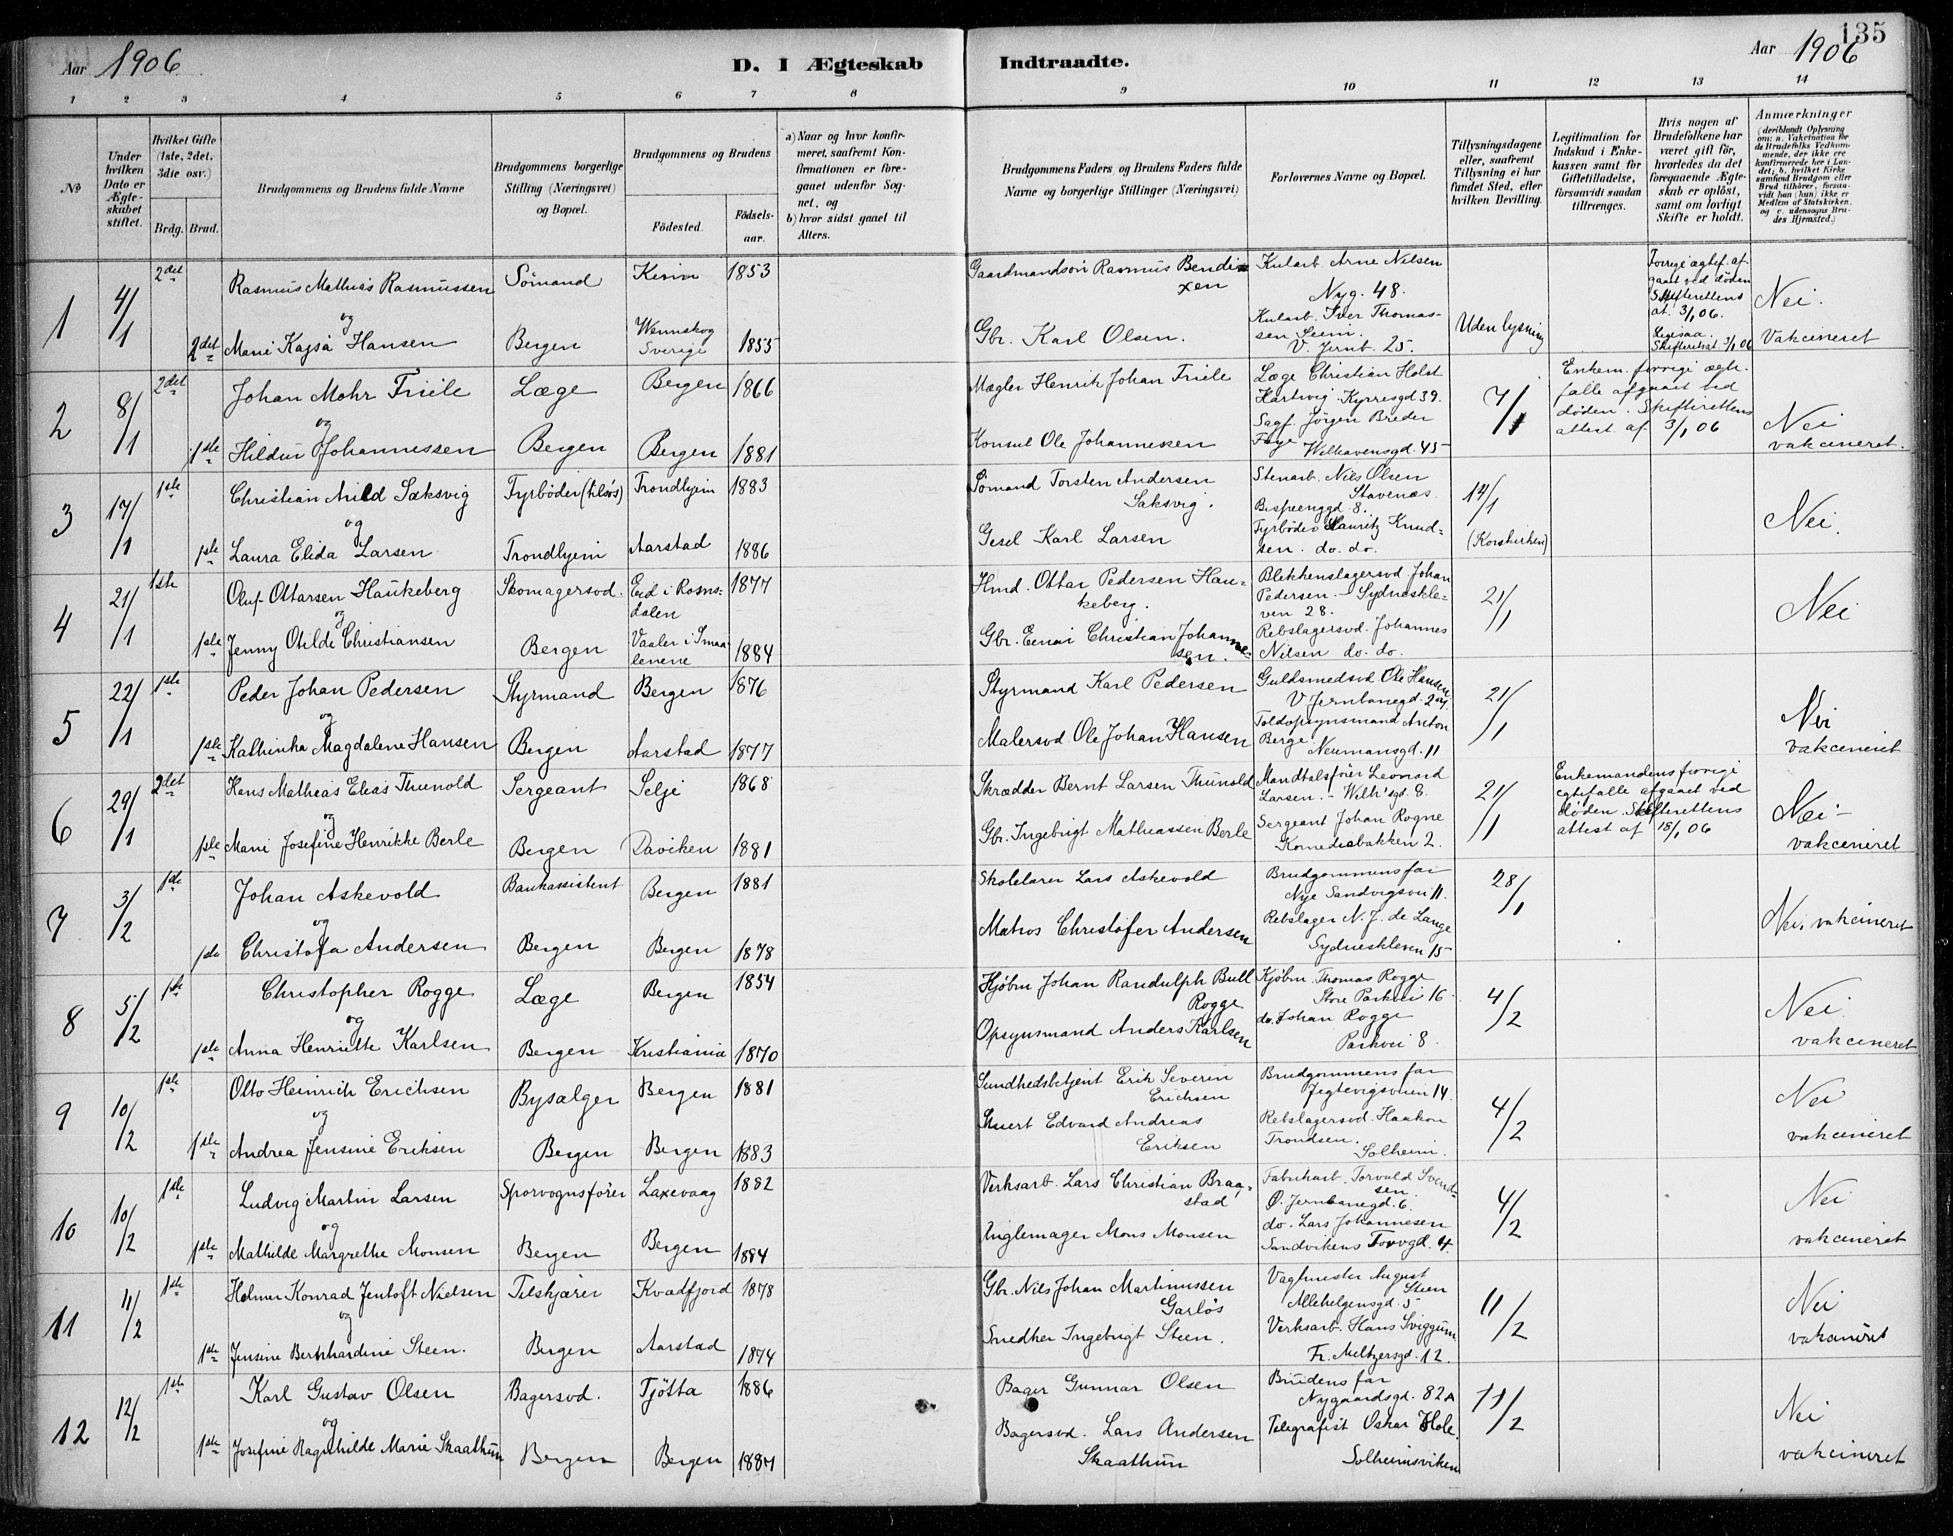 135
Aar 1906
D. I Ægteskab Indtraadte.
Aar 1906
1 2 3 4 5 6 7 8 9 10 11 12 13 14
No
Under hvilken Dato er Ægteskabet stiftet.
Hvilket Gifte (1ste, 2det, 3die osv.)
Brdg. Brud.
Brudgommens og Brudens fulde Navne
Brudgommens borgerlige Stilling (Næringsvei) og Bopæl.
Brudgommens og Brudens
Fødested.
Fødselsaar.
a) Naar og hvor konfirmeret, saafremt Konfirmationen er foregaaet udenfor Sognet, og
b) hvor sidst gaaet til Alters.
Brudgommens Faders og Brudens Faders fulde Navne og borgerlige Stillinger (Næringsvei)
Forlovernes Navne og Bopæl.
Tillysningsdagene eller, saafremt Tillysning ei har fundet Sted, efter hvilken Bevilling.
Legitimation for Indskud i Enkekassen samt for Giftetilladelse, forsaavidt saadan tiltrænges.
Hvis nogen af Brudefolkene har været gift før, hvorledes da det foregaaende Ægteskab er opløst, samt om lovligt Skifte er holdt.
Anmærkninger
(deriblandt Oplysning om: a. Vakcination for de Brudefolks Vedkommende, der ikke ere konfirmerede her i Landet; b. hvilket Kirkesamfund Brudgom eller Brud tilhører, forsaavidt han (hun) ikke er Medlem af Statskirken, og c. udensogns Brudes Hjemsted.)
1
4/1
2det
Rasmus Mathias Rasmussen
Sømand
Kinn
1853
Gaardmandsøn Rasmus Bendixen
Kularb. Arne Nilsen
Nyg. 48.
Uden lysning
Forrige ægtef. af-
gaaet ved døden
Skifterettens
at. 3/1 06.
Nei.
og
2det
Marie Kajsa Hansen
Bergen
Wennskog
Sverige
1855
Gbr. Karl Olsen.
Kularb. Iver Thomas-
sen Seim.
V. Jernb. 25.
Ligesaa.
Skifteretsat 3/1 06
Vakcineret
2
8/1
2det
Johan Mohr Friele
Læge
Bergen
1866
Mægler Henrik Johan Friele
Læge Christian Holst
Hartvig. Kyrresgd 39.
7/1
Enkem. forrige ægte-
falle afgaaet ved
døden. Skifterettens
attest af 3/1 06
Nei
vakcineret.
og
1ste
Hildur Johannessen
Bergen
Bergen
1881
Konsul Ole Johannessen
Sagf. Jørgen Breder
Faye Welhavensgd. 45
3
17/1
1ste
Christian Arild Saksvig
Fyrbøder (tilsøs)
Trondhjem
1883
Sømand Torsten Andersen
Saksvig.
Stenarb. Nils Olsen
Stavenæs.
Bispenggd. 8.
14/1
(Korskirken)
Nei.
og
1ste
Laura Elida Larsen
Trondhjem
Aarstad
1886
Gesel Karl Larsen
Fyrbøder Lauritz Knud-
sen. do. do.
4
21/1
1ste
Oluf Ottarsen Haukeberg
Skomagersvd.
Eid i Roms-
dalen
1877
Hmd. Ottar Pedersen Hau-
keberg.
Blikkenslagersvd Johan
Pedersen. - Sydneskle-
ven 28.
21/1
Nei
og
1ste
Jenny Otilde Christiansen
Bergen
Vaaler i Smaa-
lenene
1884
Gbr. Einar Christian Johanne-
sen.
Rebslagersvd. Johannes
Nilsen do. do.
5
22/1
1ste
Peder Johan Pedersen
Styrmand
Bergen
1876
Styrmand Karl Pedersen
Guldsmedsvd Ole Hansen
V. Jernbanegd. 24.
21/1
Nei
vakcineret
og
1ste
Kathinka Magdalene Hansen
Bergen
Aarstad
1877
Malersvd Ole Johan Hansen
Toldopsynsmand Anton
Berge
Neumansgd. 11
6
29/1
2det
Hans Mathias Elias Thunold
Sergeant
Selje
1868
Skrædder Bernt Larsen Thunold
Mandtalsfører Leonard
Larsen. - Welh'sgd. 8.
21/1
Enkemandens forrige
egtefalle afgaaet ved
døden. Skifterettens
attest af 18/1 06
Nei -
vakcineret
og
1ste
Marie Josefine Henrikke Berle
Bergen
Daviken
1881
Gbr. Ingebrigt Mathiassen Berle
Sergeant Johan Rogne
Komediebakken 2.
7
3/2
1ste
Johan Askevold
Bankassistent
Bergen
1881
Skolelærer Lars Askevold
Brudgommens far
Nye Sandvigsvei 11.
28/1
Nei, vakcineret
og
1ste
Christofa Andersen
Bergen
Bergen
1878
Matros Christofer Andersen
Rebslager N. J. de Lange
Sydneskleven 15
8
5/2
1ste
Christopher Rogge
Læge
Bergen
1854
Kjøbm Johan Randulph Bull
Rogge
Kjøbm. Thomas Rogge
Store Parkvei 16
4/2
Nei
vakcineret
og
1ste
Anna Henriette Karlsen
Bergen
Kristiania
1870
Opsynsmand Anders Karlsen
do. Johan Rogge
Parkvei 8.
9
10/2
1ste
Otto Heinrich Erichsen
Bysælger
Bergen
1881
Sundhedsbetjent Erik Severin
Erichsen
Brudgommens far
Jegtevigsveien 14.
4/2
Nei
vakcineret
og
1ste
Andrea Jensine Eriksen
Bergen
Bergen
1883
Edvard Andreas
Eriksen
Rebslagersvd. Haakon
Trondsen.
Solheim.
10
10/2
1ste
Ludvig Martin Larsen
Sporvognsfører
Laxevaag
1882
Verksarb. Lars Christian Braa-
stad
Fabrikarb. Torvald Svend-
sen.
Ø. Jernbanegd. 6.
4/2
Nei
vakcineret
og
1ste
Mathilde Margrethe Monsen
Bergen
Bergen
1884
Anglemager Mons Monsen
do. Lars Johannesen
Sandvikens Torvgd. 4.
11
11/2
1ste
Helmer Konrad Jentoft Nielsen
Tilskjærer
Kvædfjord
1878
Gbr. Nils Johan Martinussen
Garløs
Vagtmester August
Steen
Allehelgensgd. 5
11/2
Nei
vakcineret
og
1ste
Jensine Bernhardine Steen.
Bergen
Aarstad
1874
Snedker Ingebrigt Steen.
Verksarb. Hans Sviggum
Fr. Meltzersgd. 12.
12
12/2
1ste
Karl Gustav Olsen
Bagersvd.
Tjøtta
1886
Bager Gunnar Olsen
Brudens far
Nygaardsgd. 82A
11/2
Nei
vakcineret
og
1ste
Josefine Ragnhilde Marie Skaathun
Bergen
Bergen
1887
Bagersvd. Lars Andersen
Skaathun
Telegrafist Oskar Hole.
Solheimsviken